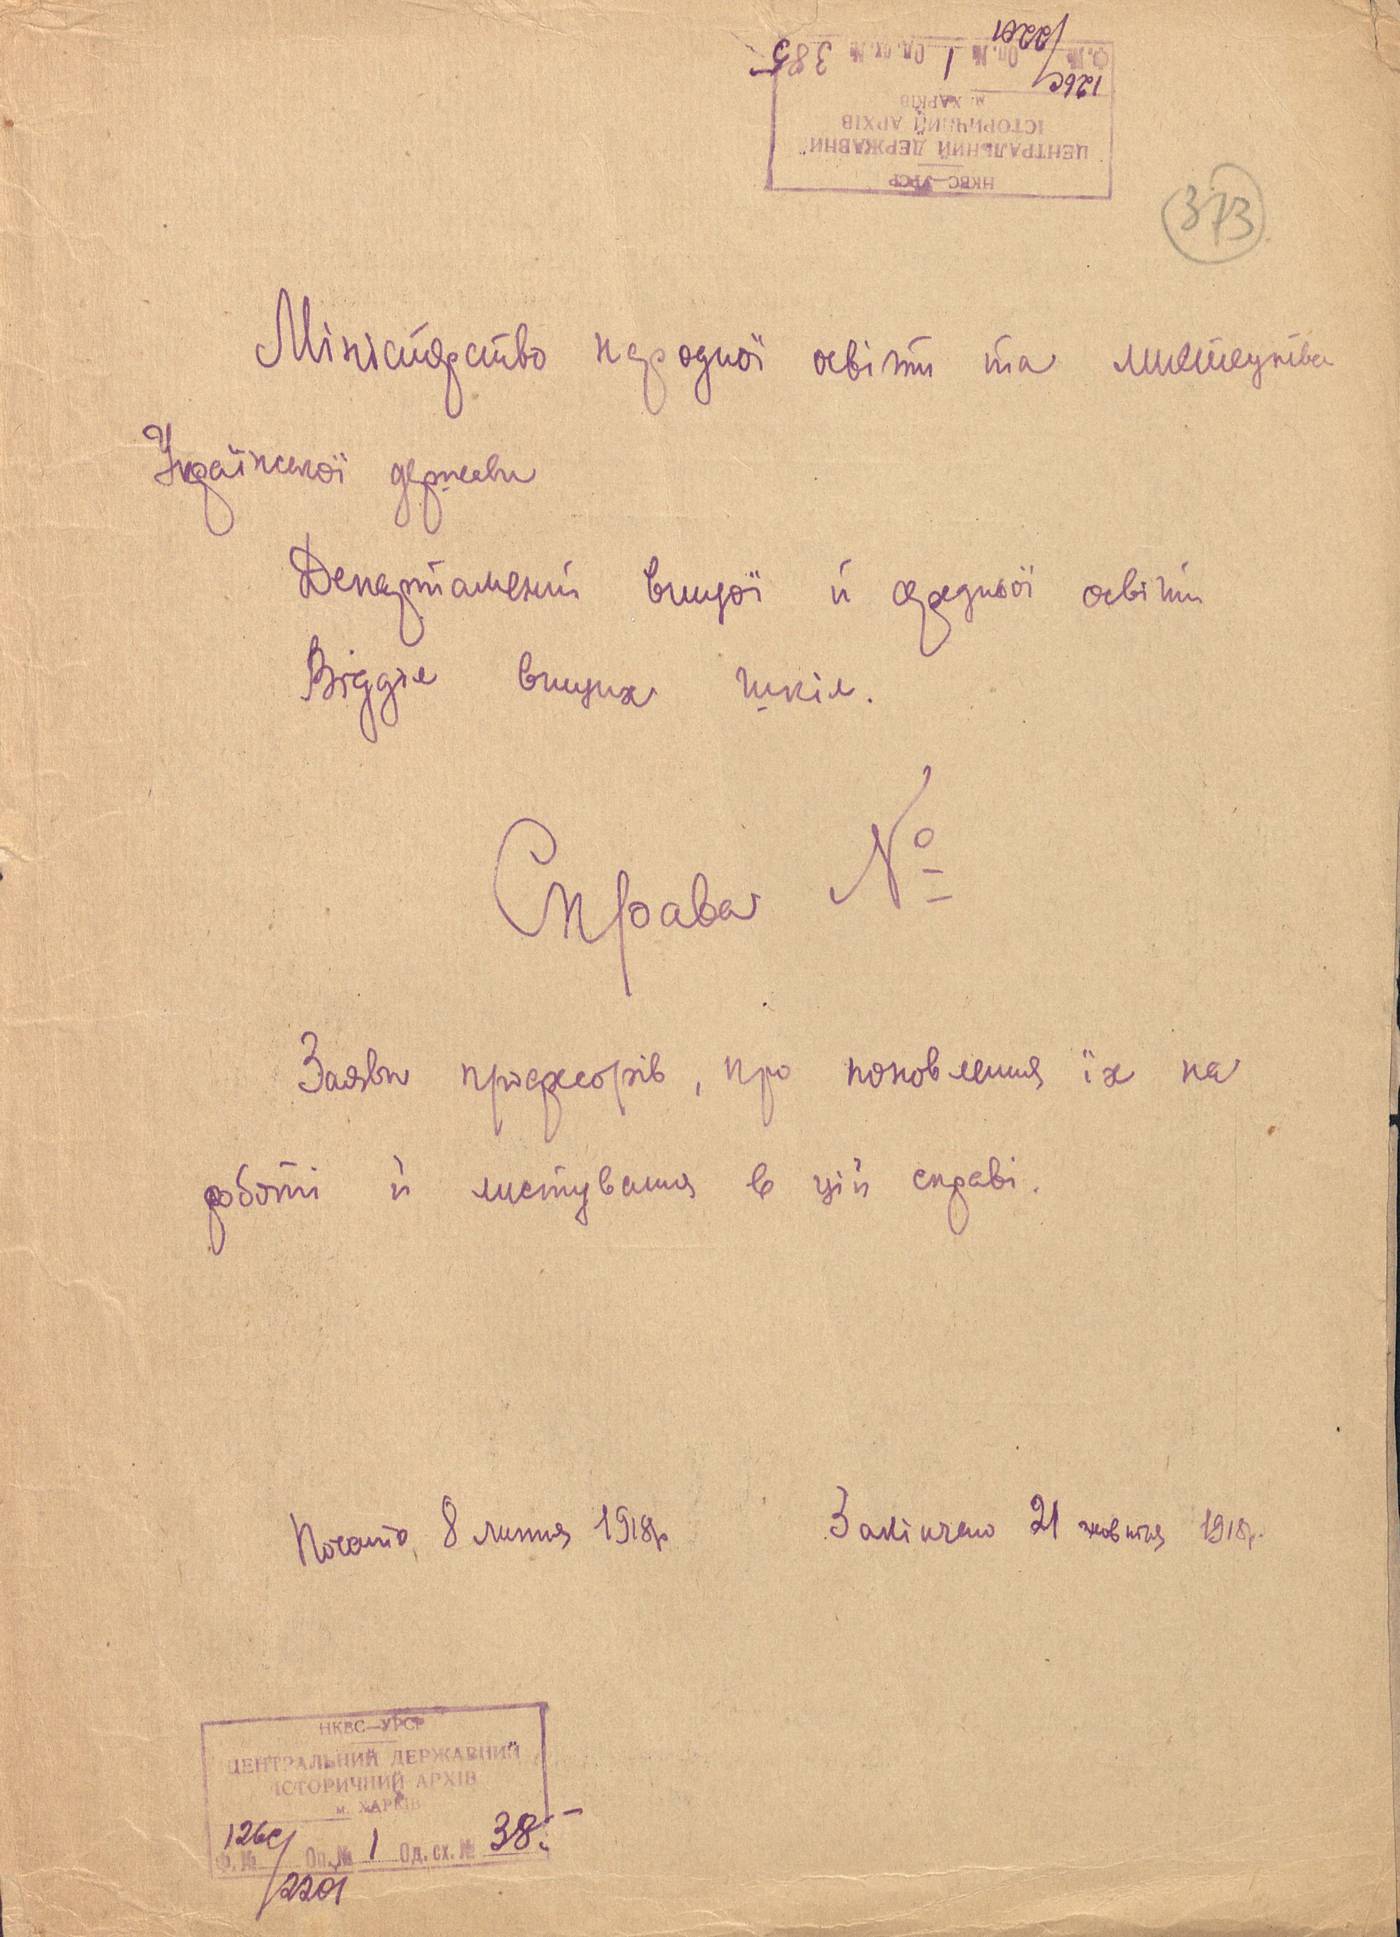 НКВС—УРСР
ЦЕНТРАЛЬНИЙ ДЕРЖАВНИЙ
ІСТОРИЧНИЙ АРХІВ
м. ХАРКІВ
Ф. № 126с/2201 Оп. № 1 Од. сх. № 385
373
Міністерство народної освіти та мистецтва
Української держави
Департамент вищої й середньої освіти
Відділ вищих шкіл.
Справа №
Заяви професорів, про поновлення їх на
роботі й листування в цій справі.
Почато 8 липня 1918р. Закінчено 21 жовтня 1918р.
НКВС—УРСР
ЦЕНТРАЛЬНИЙ ДЕРЖАВНИЙ
ІСТОРИЧНИЙ АРХІВ
м. ХАРКІВ
Ф. № 126с/2201 Оп. № 1 Од. сх. № 385